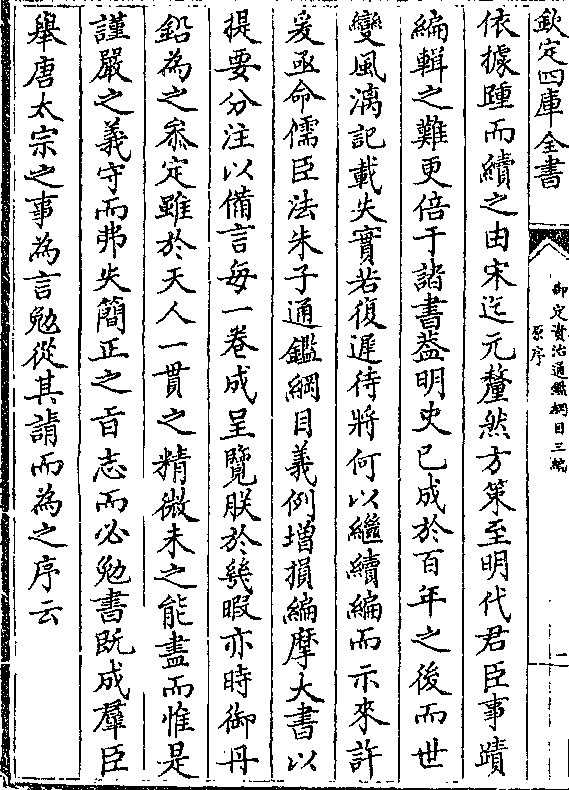 欽定四庫全書
御定資治通鑑綱目三編
原序
一
依據踵而續之由宋迄元釐然方策至明代君臣事蹟
編輯之難更倍于諸書葢明史已成於百年之後而世
變風漓記載失實若復遲待將何以繼續編而示來許
爰亟命儒臣法朱子通鑑綱目義例増損編摩大書以
提要分注以備言每一卷成呈覽朕於幾暇亦時御丹
鉛為之叅定雖於天人一貫之精微未之能盡而惟是
謹嚴之義守而弗失簡正之㫖志而必勉書既成羣臣
舉唐太宗之事為言勉從其請而為之序云